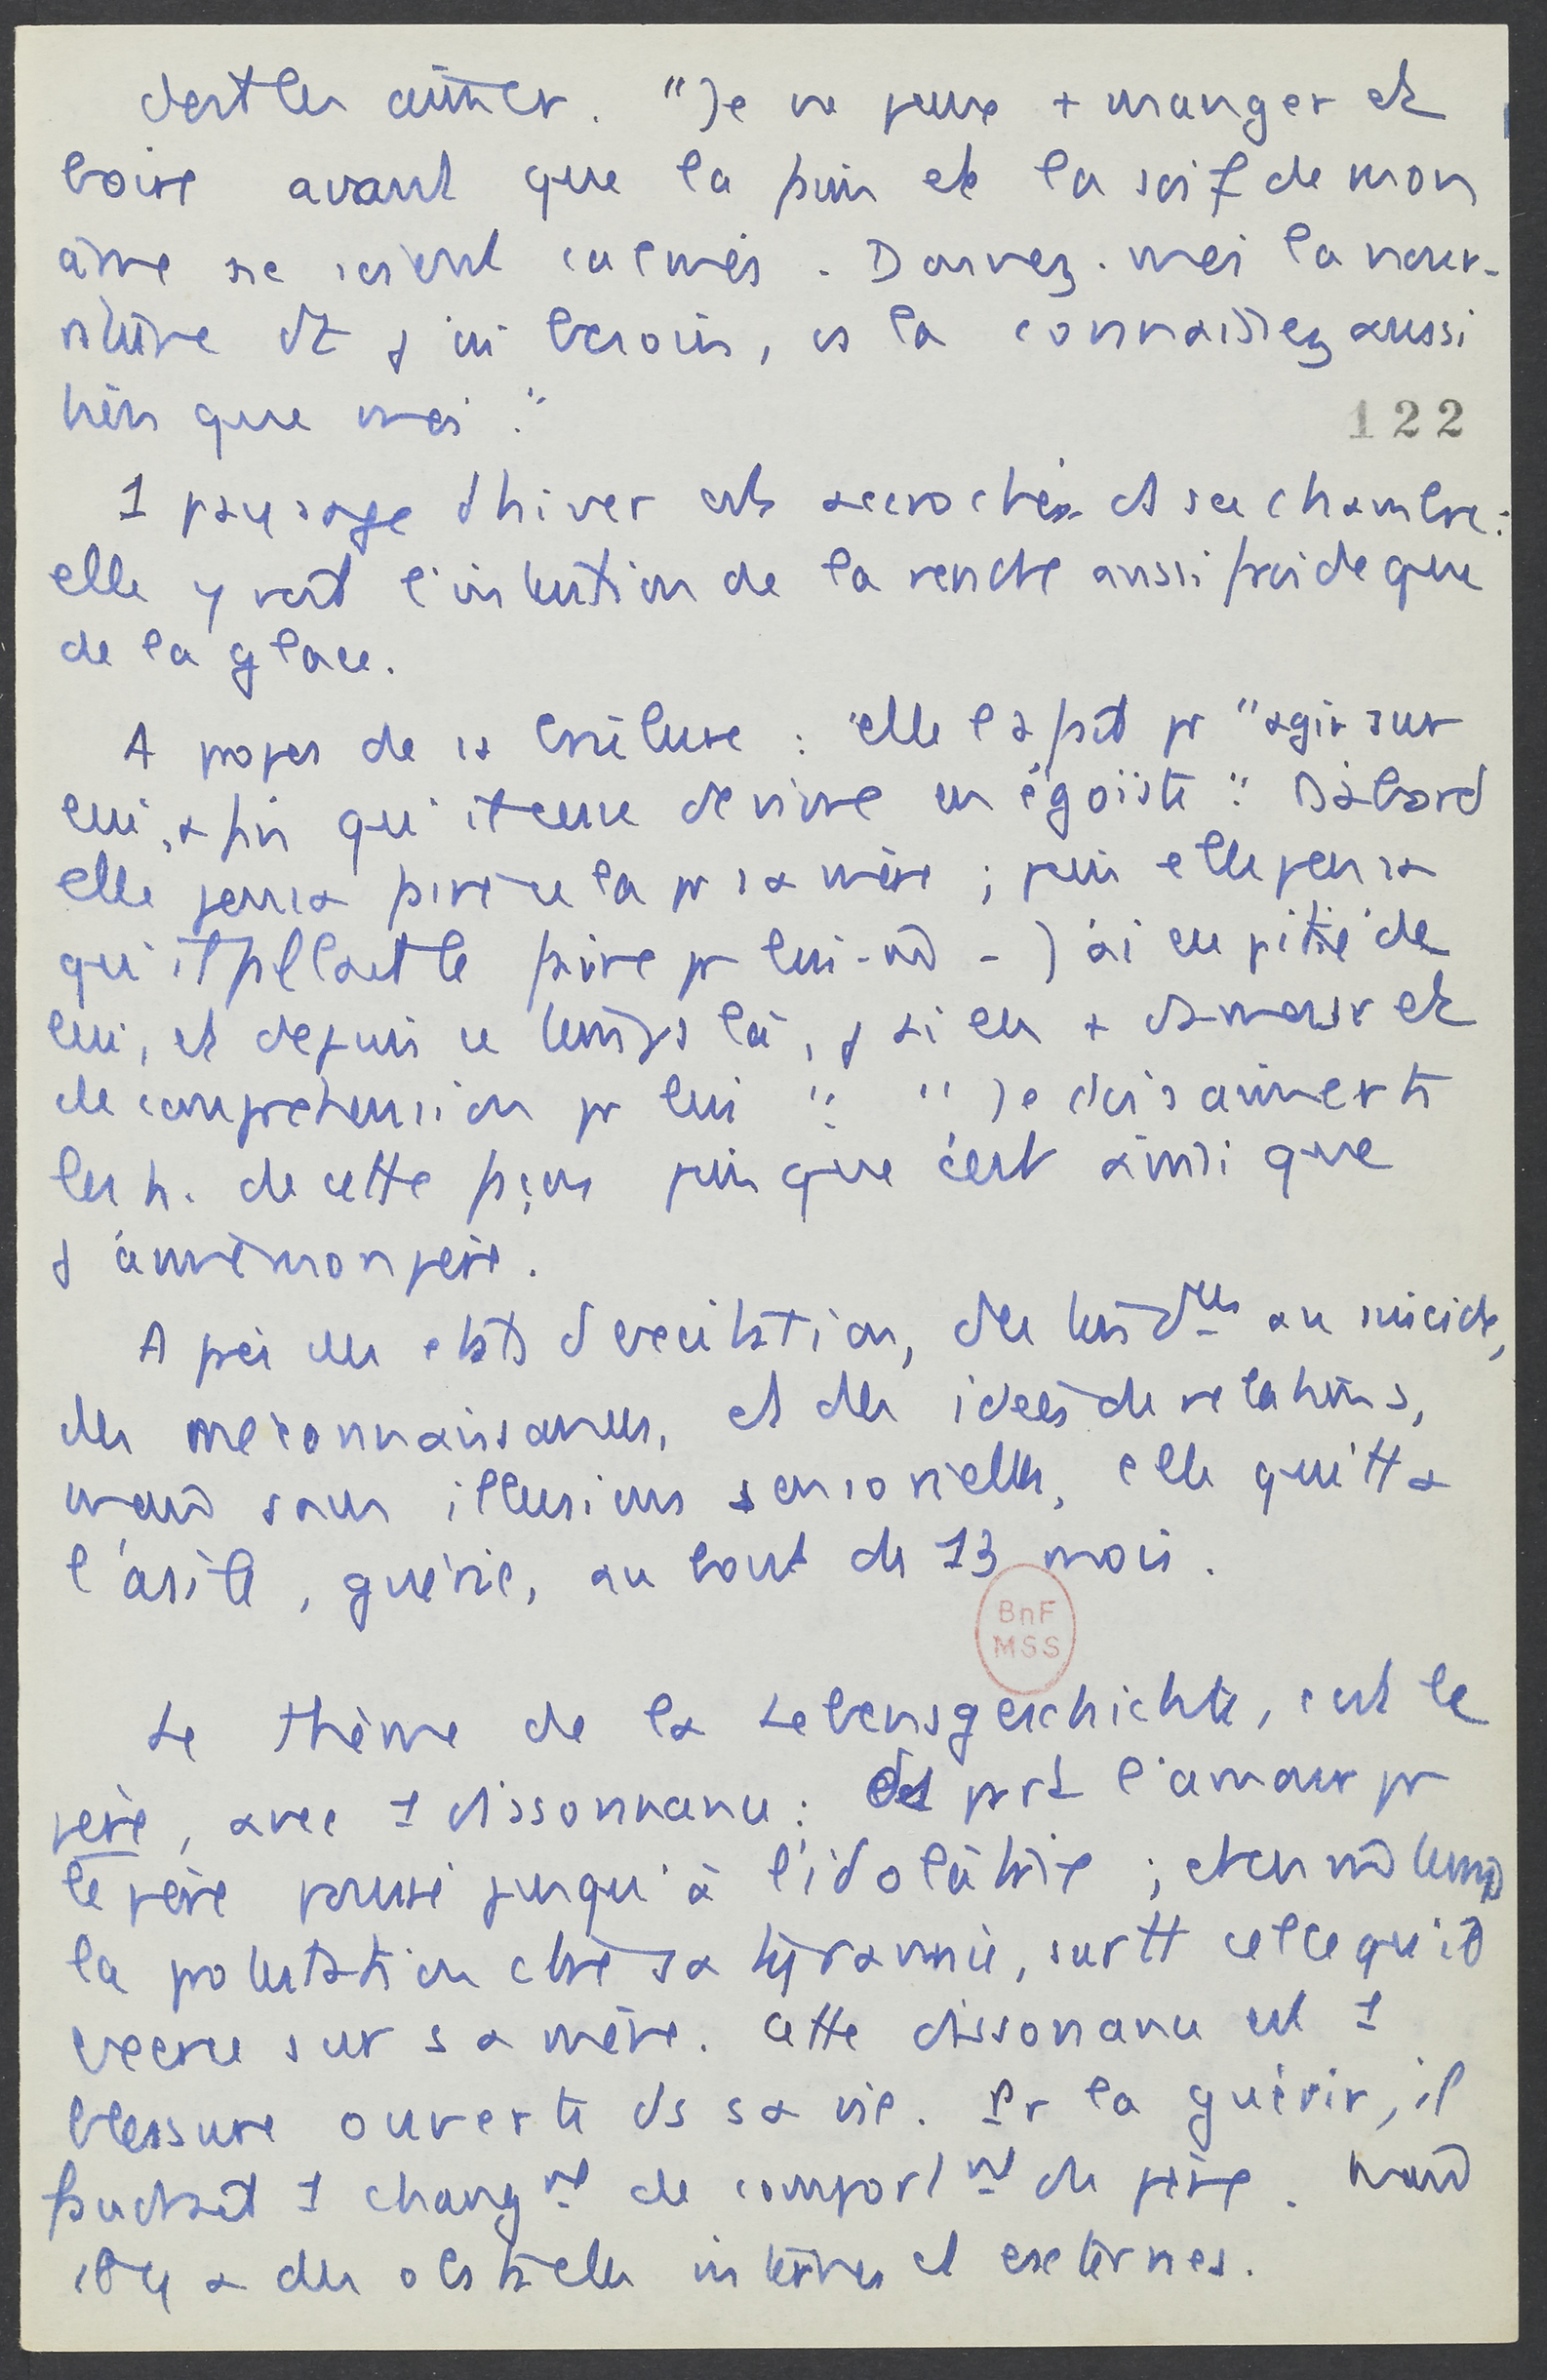 doit les aimer. "Je ne peux + manger et
boire avant que la faim et la soif de mon
âme se soient calmés. Donnez-moi la nour-
riture dt j'ai besoin, vs la connaissez aussi
bien que moi."
122
1 paysage d'hiver est accroché ds sa chambre :
elle y voit l'intention de la rendre aussi froide que
de la glace.
A propos de sa brûlure : elle l'a fait pr "agir sur
lui, afin qu'il cesse de vivre en égoïste". D'abord
elle pensa faire cela pr sa mère ; puis elle pensa
qu'il fallait le faire pr lui-m̂ - J'ai eu pitié de
lui, et depuis ce temps là, j'ai eu + d'amour et
de compréhension pr lui". "Je dois aimer ts
les h. de cette façon puisque c'est ainsi que
j'aime mon père.
Après des états d'excitation, des tendces au suicide,
des méconnaissances, et des idées de relations,
mais sans illusions sensorielles, elle quitta
l'asile, guérie, au bout de 13 mois.
BnF
MSS
Le thème de la Lebensgeschichte, c'est le
père, avec 1 dissonnance : d'1 part l'amour pr
le père poussé jusqu'à l'idolâtrie ; et en m̂ temps
la protestation ctre sa tyrannie, surtt celle qu'il
exerce sur sa mère. Cette dissonance est 1
blessure ouverte ds sa vie. Pr la guérir, il
faudrait 1 changnt de comportnt du père. Mais
il y a des obstacles internes et externes.